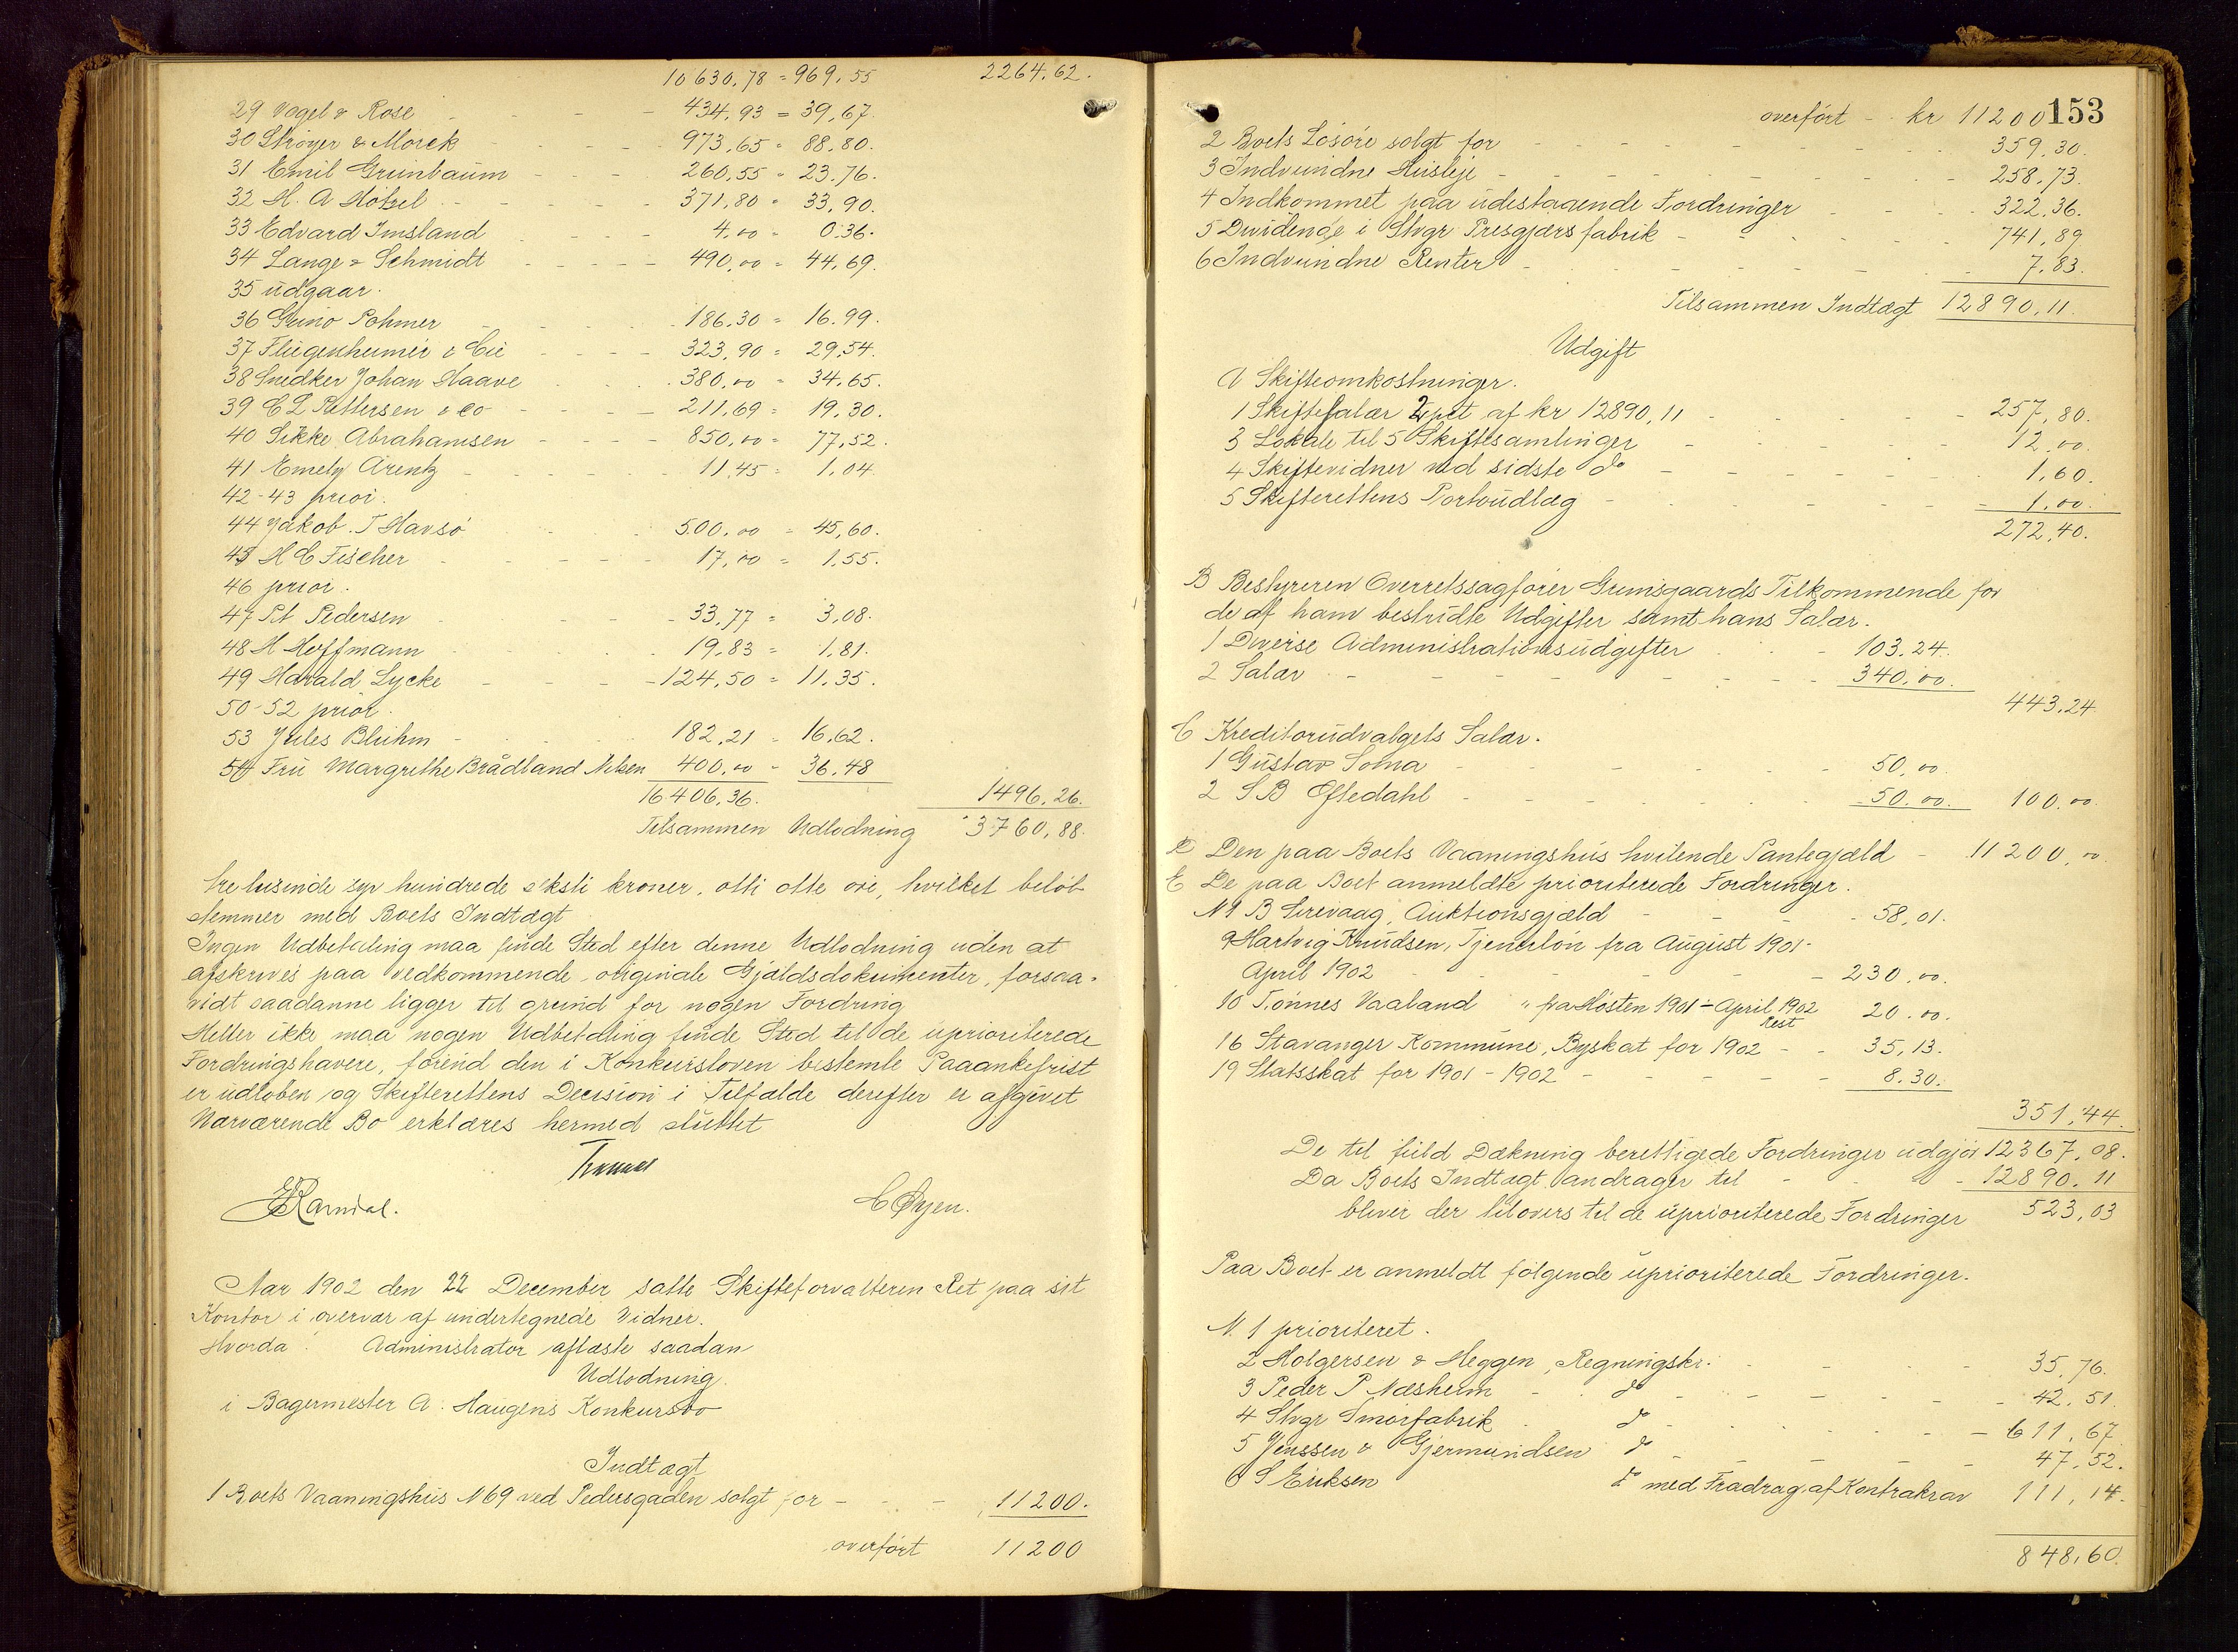 10630,78 = 969,55 2264,62.
29 Vogel & Rose - - - 434,93 = 39,67.
30 Ströyer & Morck - - - 973,65 = 88,80.
31 Emil Grünbaum - - - 260,55 = 23,76.
32 H. A Hötzel - - - 371,80 = 33,90.
33 Edvard Imsland - - - 4,00 = 0.36.
34 Lange & Schmidt - - - 490,00 = 44,69.
35 udgaar.
36 Bruno Pohmer - - - 186.30 = 16.99.
37 Fliegenheimer & Cie - - - 323,90 = 29,54.
38 Snedker Johan Haave - - - 380,00 = 34,65.
39 C L Pettersen & Co - - - 211,69 = 19,30.
40 Sikke Abrahamsen - - - 850,00 = 77,52.
41 Emely Arentz - - - 11,45 = 1,04.
42-43 prior.
44 Jakob. T Havsö - - - 500,00 = 45,60.
45 H C Fischer - - - 17,00 = 1,55.
46 prior.
47 Pt Pedersen - - - 33,77 = 3,08.
48 H Hoffmann - - - 19,83 = 1,81.
49 Harald Lycke - - - 124,50 = 11,35.
50-52 prior.
53 Jules Blühm - - - 182,21 = 16,62.
54 Fru Margrethe Brådland Nilsen 400,00 - 36,48
16406,36. 1496,26.
Tilsammen Udlodning 3760,88.
tre tusinde syv hundrede seksti kroner, otti otte øre, hvilket beløb
stemmer med Boets Indtægt
Ingen Udbetaling maa finde Sted efter denne Udlodning uden at
afskrives paa vedkommende originale Gjældsdokumenter, forsaa-
vidt saadanne ligger til grund for nogen Fordring
Heller ikke maa nogen Udbetaling finde Sted til de uprioriterede
Fordringshavere, førend den i Konkursloven bestemte Paaankefrist
er udløben og Skifterettens Decision i Tilfælde derefter er afgivet
Nærværende Bo erklæres hermed sluttet
E Ramdal. C Øyen.
Aar 1902 den 22 December satte Skifteforvalteren Ret paa sit
Kontor i overvær af undertegnede Vidner.
Hvorda: Administrator aflæste saadan
Udlodning
i Bagermester A. Haugens Konkursbo
Indtægt
1 Boets Vaaningshus N 69 ved Pedersgaden solgt for - - - 11200.
overført 11200
153
overført - kr 11200
2 Boets Løsøre solgt for - - - 359,30.
3 Indvundne Husleje - - - 258,73.
4 Indkommet paa udestaaende Fordringer - - - 322,36.
5 Dividende i Stvgr Presgjærsfabrik - - - 741,89
6 Indvundne Renter - - - 7,83.
Tilsammen Indtægt 12890,11.
Udgift
A Skifteomkostninger.
1 Skiftesalær 2 pct af kr 12890,11 - - - 257,80.
3 Lokale til 5 Skiftesamlinger - - - 12,00.
4 Skiftevidner ved sidste do - - - 1,60.
5 Skifterettens Portoudlæg - - - 1,00.
272,40.
B Bestyreren Overretssagfører Grimsgaards Tilkommende for
de af ham bestridte Udgifter samt hans Salær.
1 Diverse Administrationsudgifter - - 103.24.
2 Salær - - - 340,00.
443,24
C Kreditorudvalgets Salær.
1 Gustav Soma - - - 50,00.
2 S B Oftedahl - - - 50.00. 100,00.
D Den paa Boets Vaaningshus hvilende Pantegjæld - 11200,00.
E De paa Boet anmeldte prioriterede Fordringer.
N 1 B Sirevaag, Auktionsgjæld - - - 58,01.
9 Hartvig Knudsen, Tjenerløn fra August 1901-
April 1902 - - - 230,00.
10 Tönnes Vaaland " fra Høsten 1901 - April 1902 20.00.
Rest
16 Stavanger Kommune, Byskat for 1902 - - 35,13.
19 Statsskat for 1901-1902 - - - 8.30.
351,44.
De til fuld Dækning berettigede Fordringer udgjør 12367,08.
Da Boets Indtægt andrager til - - - 12890.11
bliver der tilovers til de uprioriterede Fordringer 523,03
Paa Boet er anmeldt følgende uprioriterede Fordringer.
N. 1 prioriteret.
2 Holgersen & Heggen, Regningskr. - - - 35,76.
3 Peder P Næsheim - do - - - 42,51.
4 Stvgr Smørfabrik - do - - - 611,67
5 Jenssen & Gjermundsen do - - - 47,52.
6 S Eriksen do med Fradrag af Kontrakrav 111,14.
848,60.